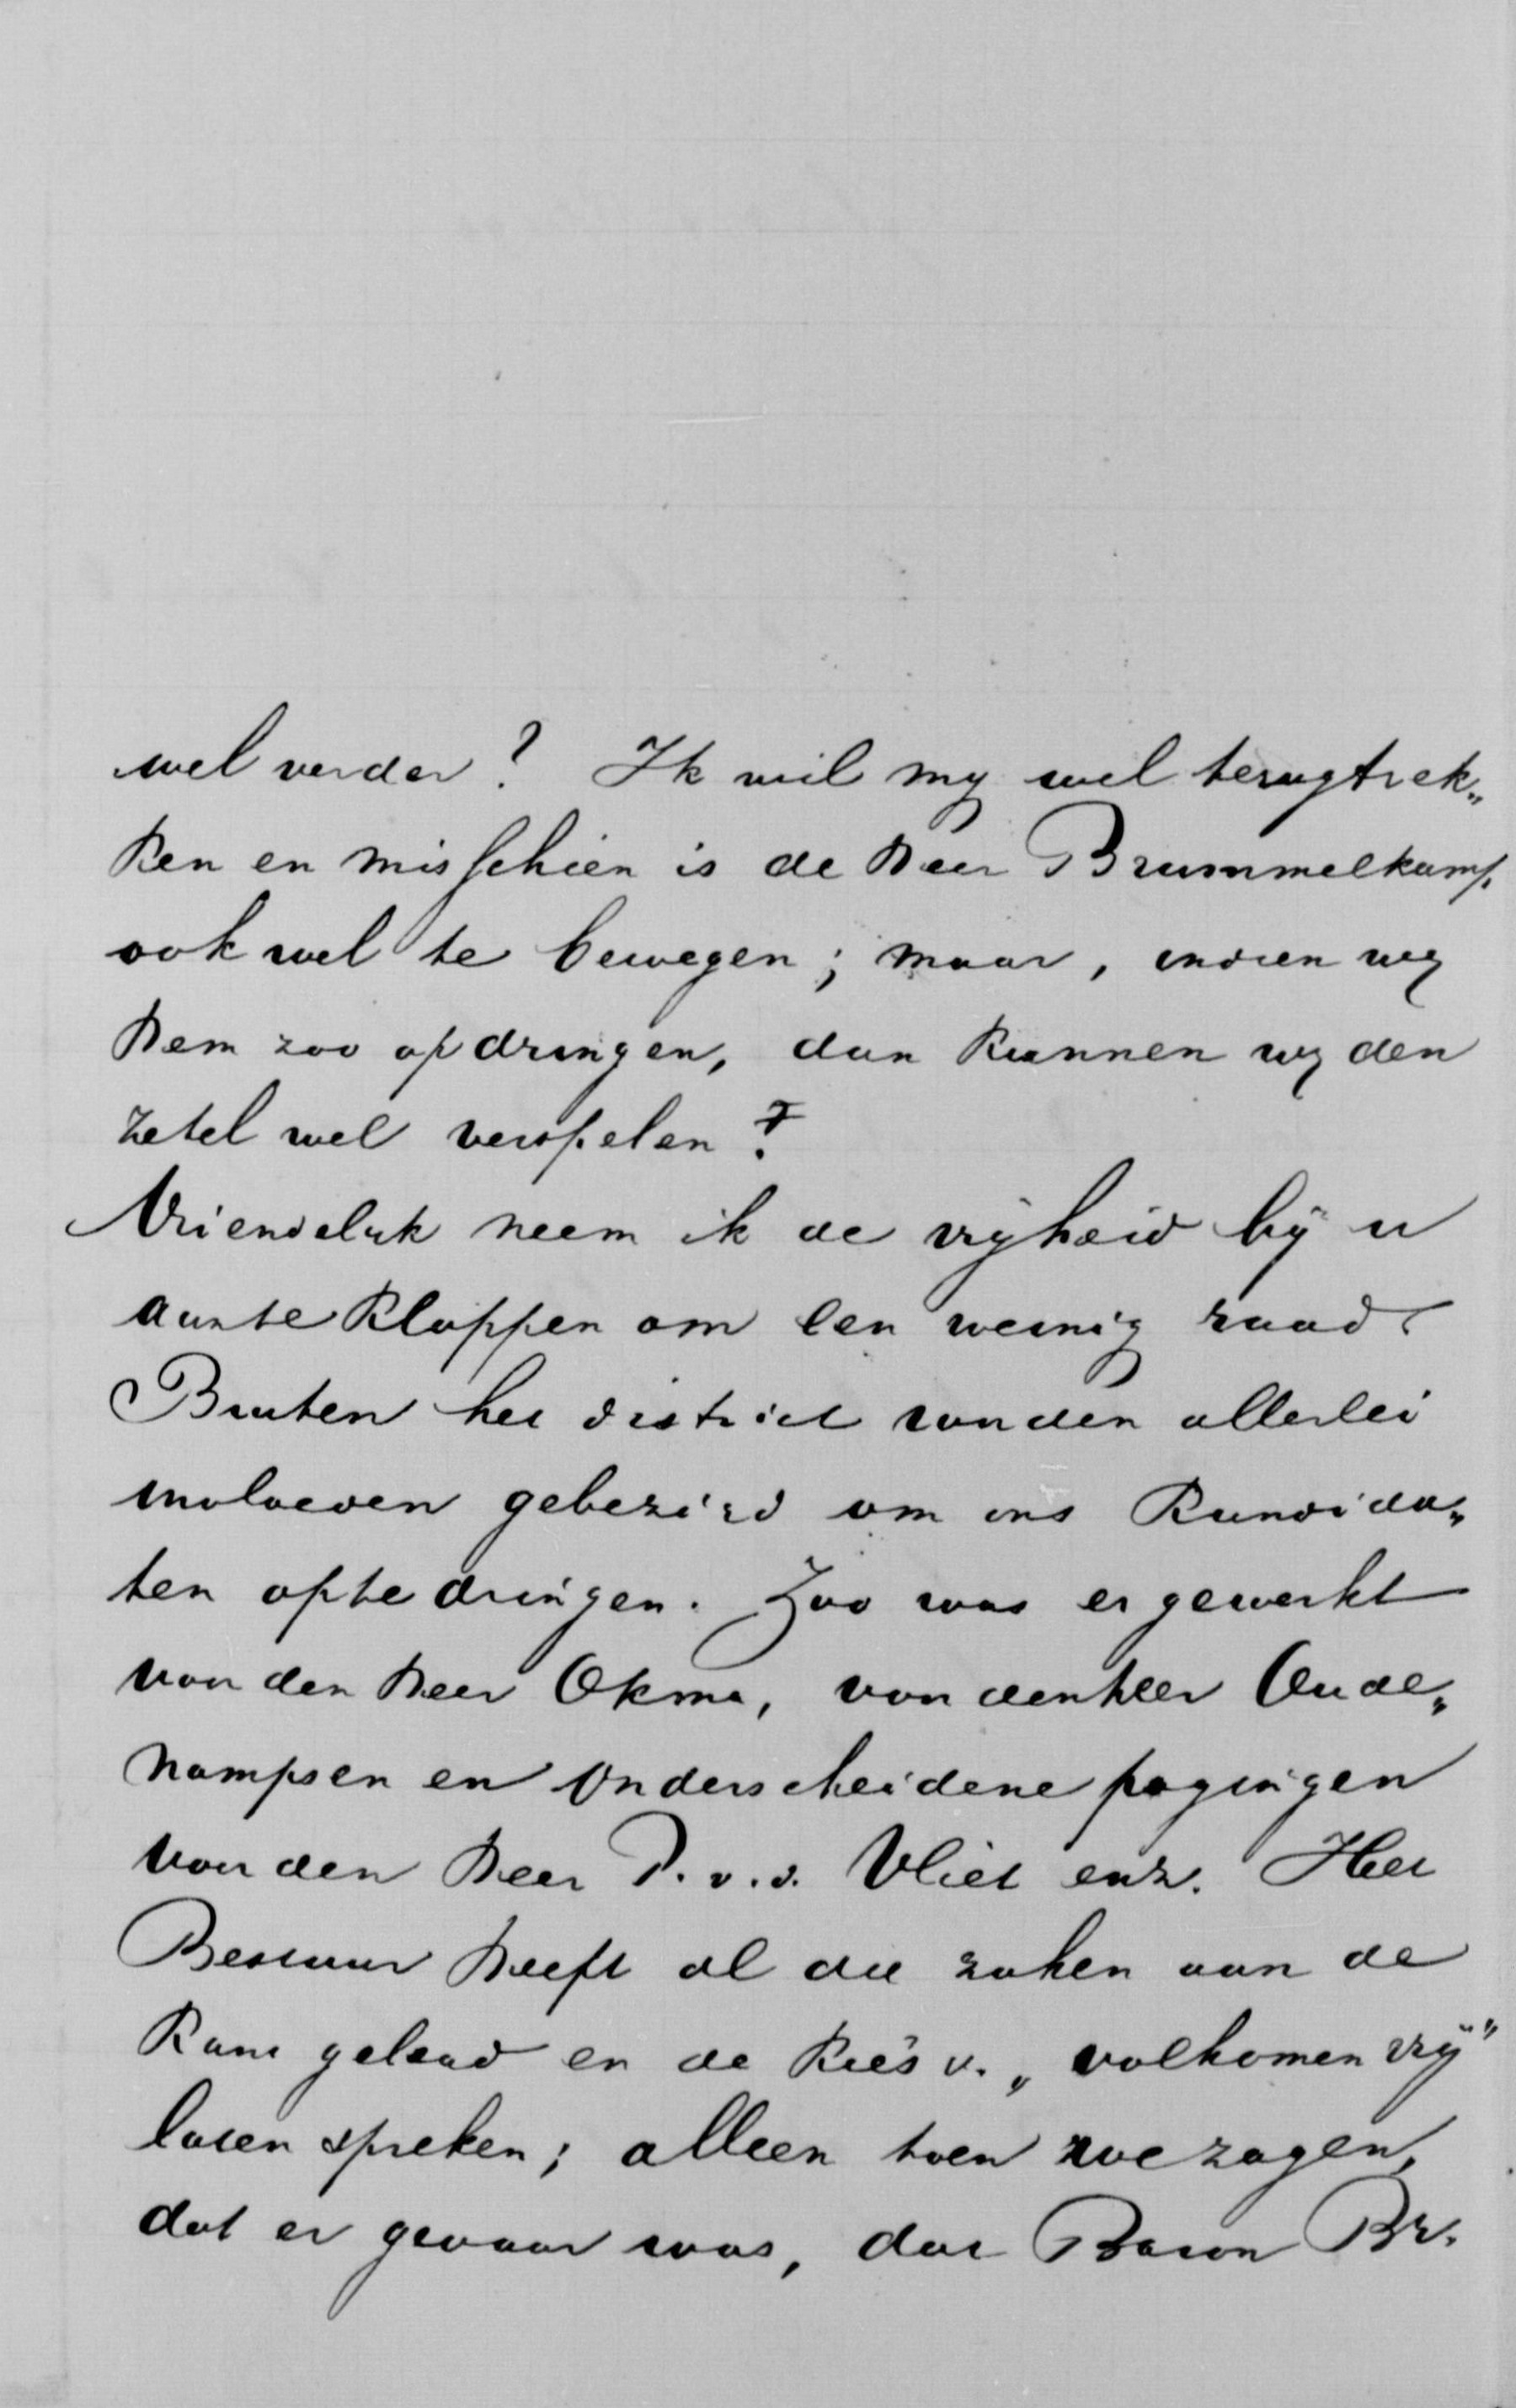 wel verder? Ik wil my wel terugtrek„
ken en misschien is de heer Brummelkamp
ook wel te bewegen; maar, indien wy
hem zoo opdringen, dan kunnen wy den
zetel wel verspelen?
Vriendelijk neem ik de vrijheid bij u
aante kloppen om een weinig raad.
Buiten het district worden allerlei
invloeden gebezigd om ons Kandida„
ten opte dringen. Zoo was er gewerkt
voor den heer Okma, voor den heer Oude„
kampsen en onderscheidene pogingen
voor den heer P. v. d. Vliet enz. Het
Bestuur heeft al die zaken aan de
kant gelegd en de kiesv. „volkomen vrij"
laten spreken; alleen toen we zagen,
dat er gevaar was, dat Baron Br.